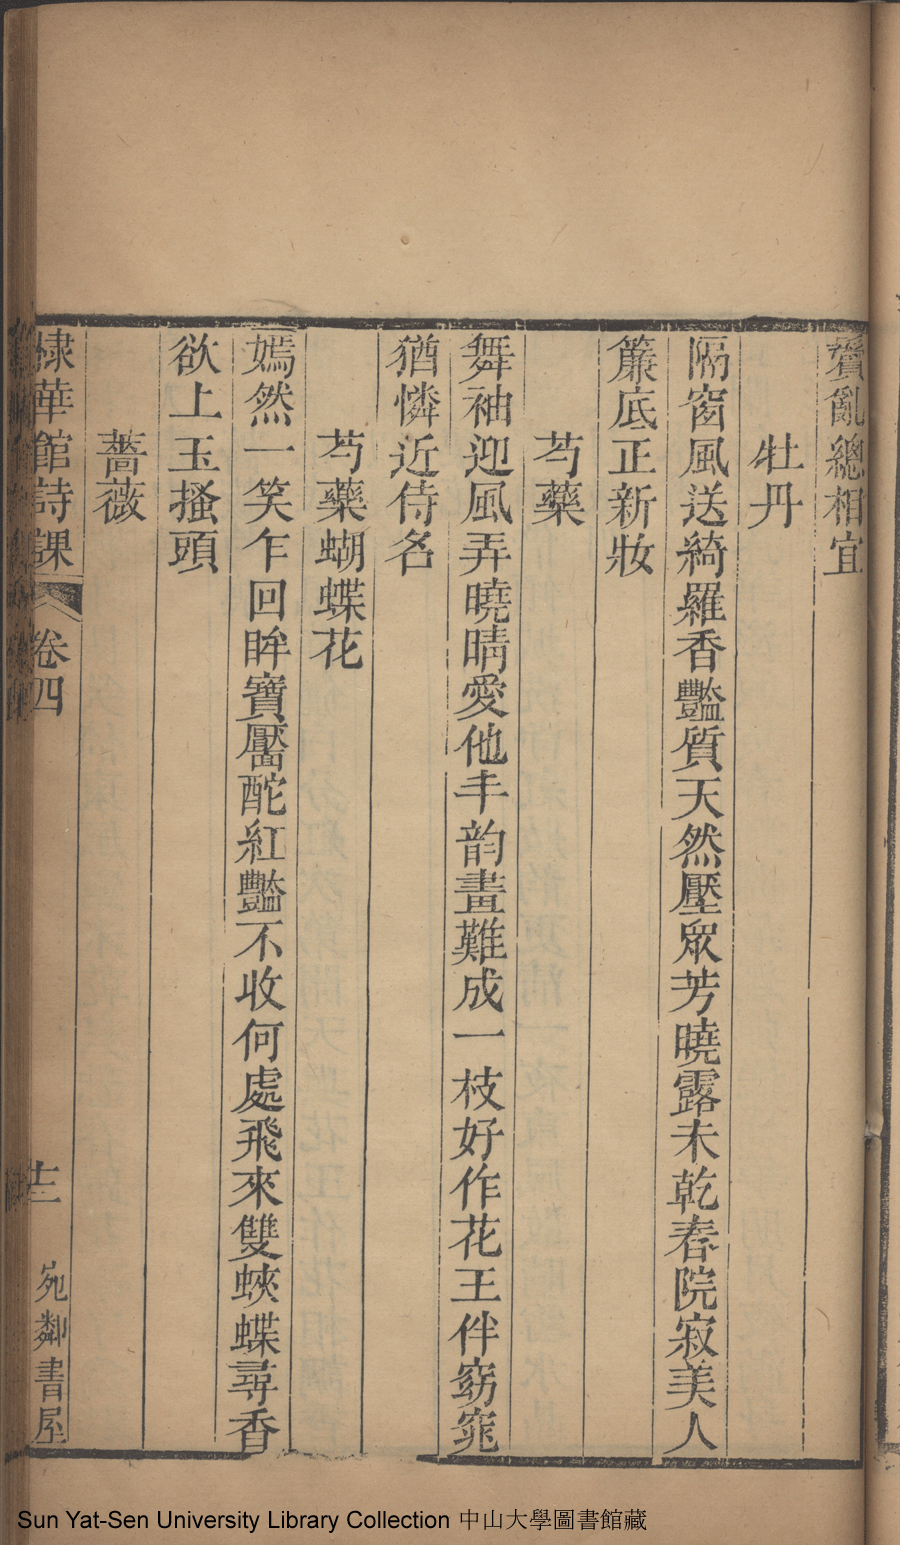 鬢亂總相宜
牡丹
隔窗風送綺羅香豔質天然壓眾芳曉露未乾春院寂美人
簾底正新妝
芍藥
舞袖迎風弄曉晴愛他丰韵畫難成一枝好作花王伴窈窕
猶憐近侍名
芍藥蝴蝶花
嫣然一笑乍回眸寶靨酡紅豔不收何處飛來雙蛺蝶尋香
欲上玉搔頭
薔薇
棣華館詩課
卷四
十二
宛鄰書屋
Sun Yat-Sen University Library Collection 中山大學圖書館藏